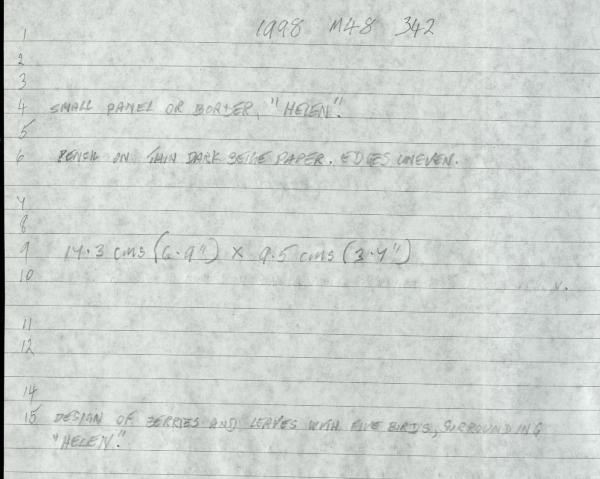 1998 M48 342
1
2
3
4 SMALL PANEL OR BORDER, "HELEN".
5
6 PENCIL ON THIN DARK BEIGE PAPER. EDGES UNEVEN.
7
8
9 17.3 cms (6.9") X 9.5 cms (3.7")
10
11
12
14
15 DESIGN OF BERRIES AND LEAVES WITH FIVE BIRDS, SURROUNDING
"HELEN."